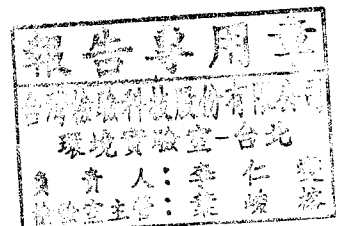 報告專用章
台灣檢驗科技股份有限公司
環境實驗室-台北
負責人：李仁
檢驗室主管：葉